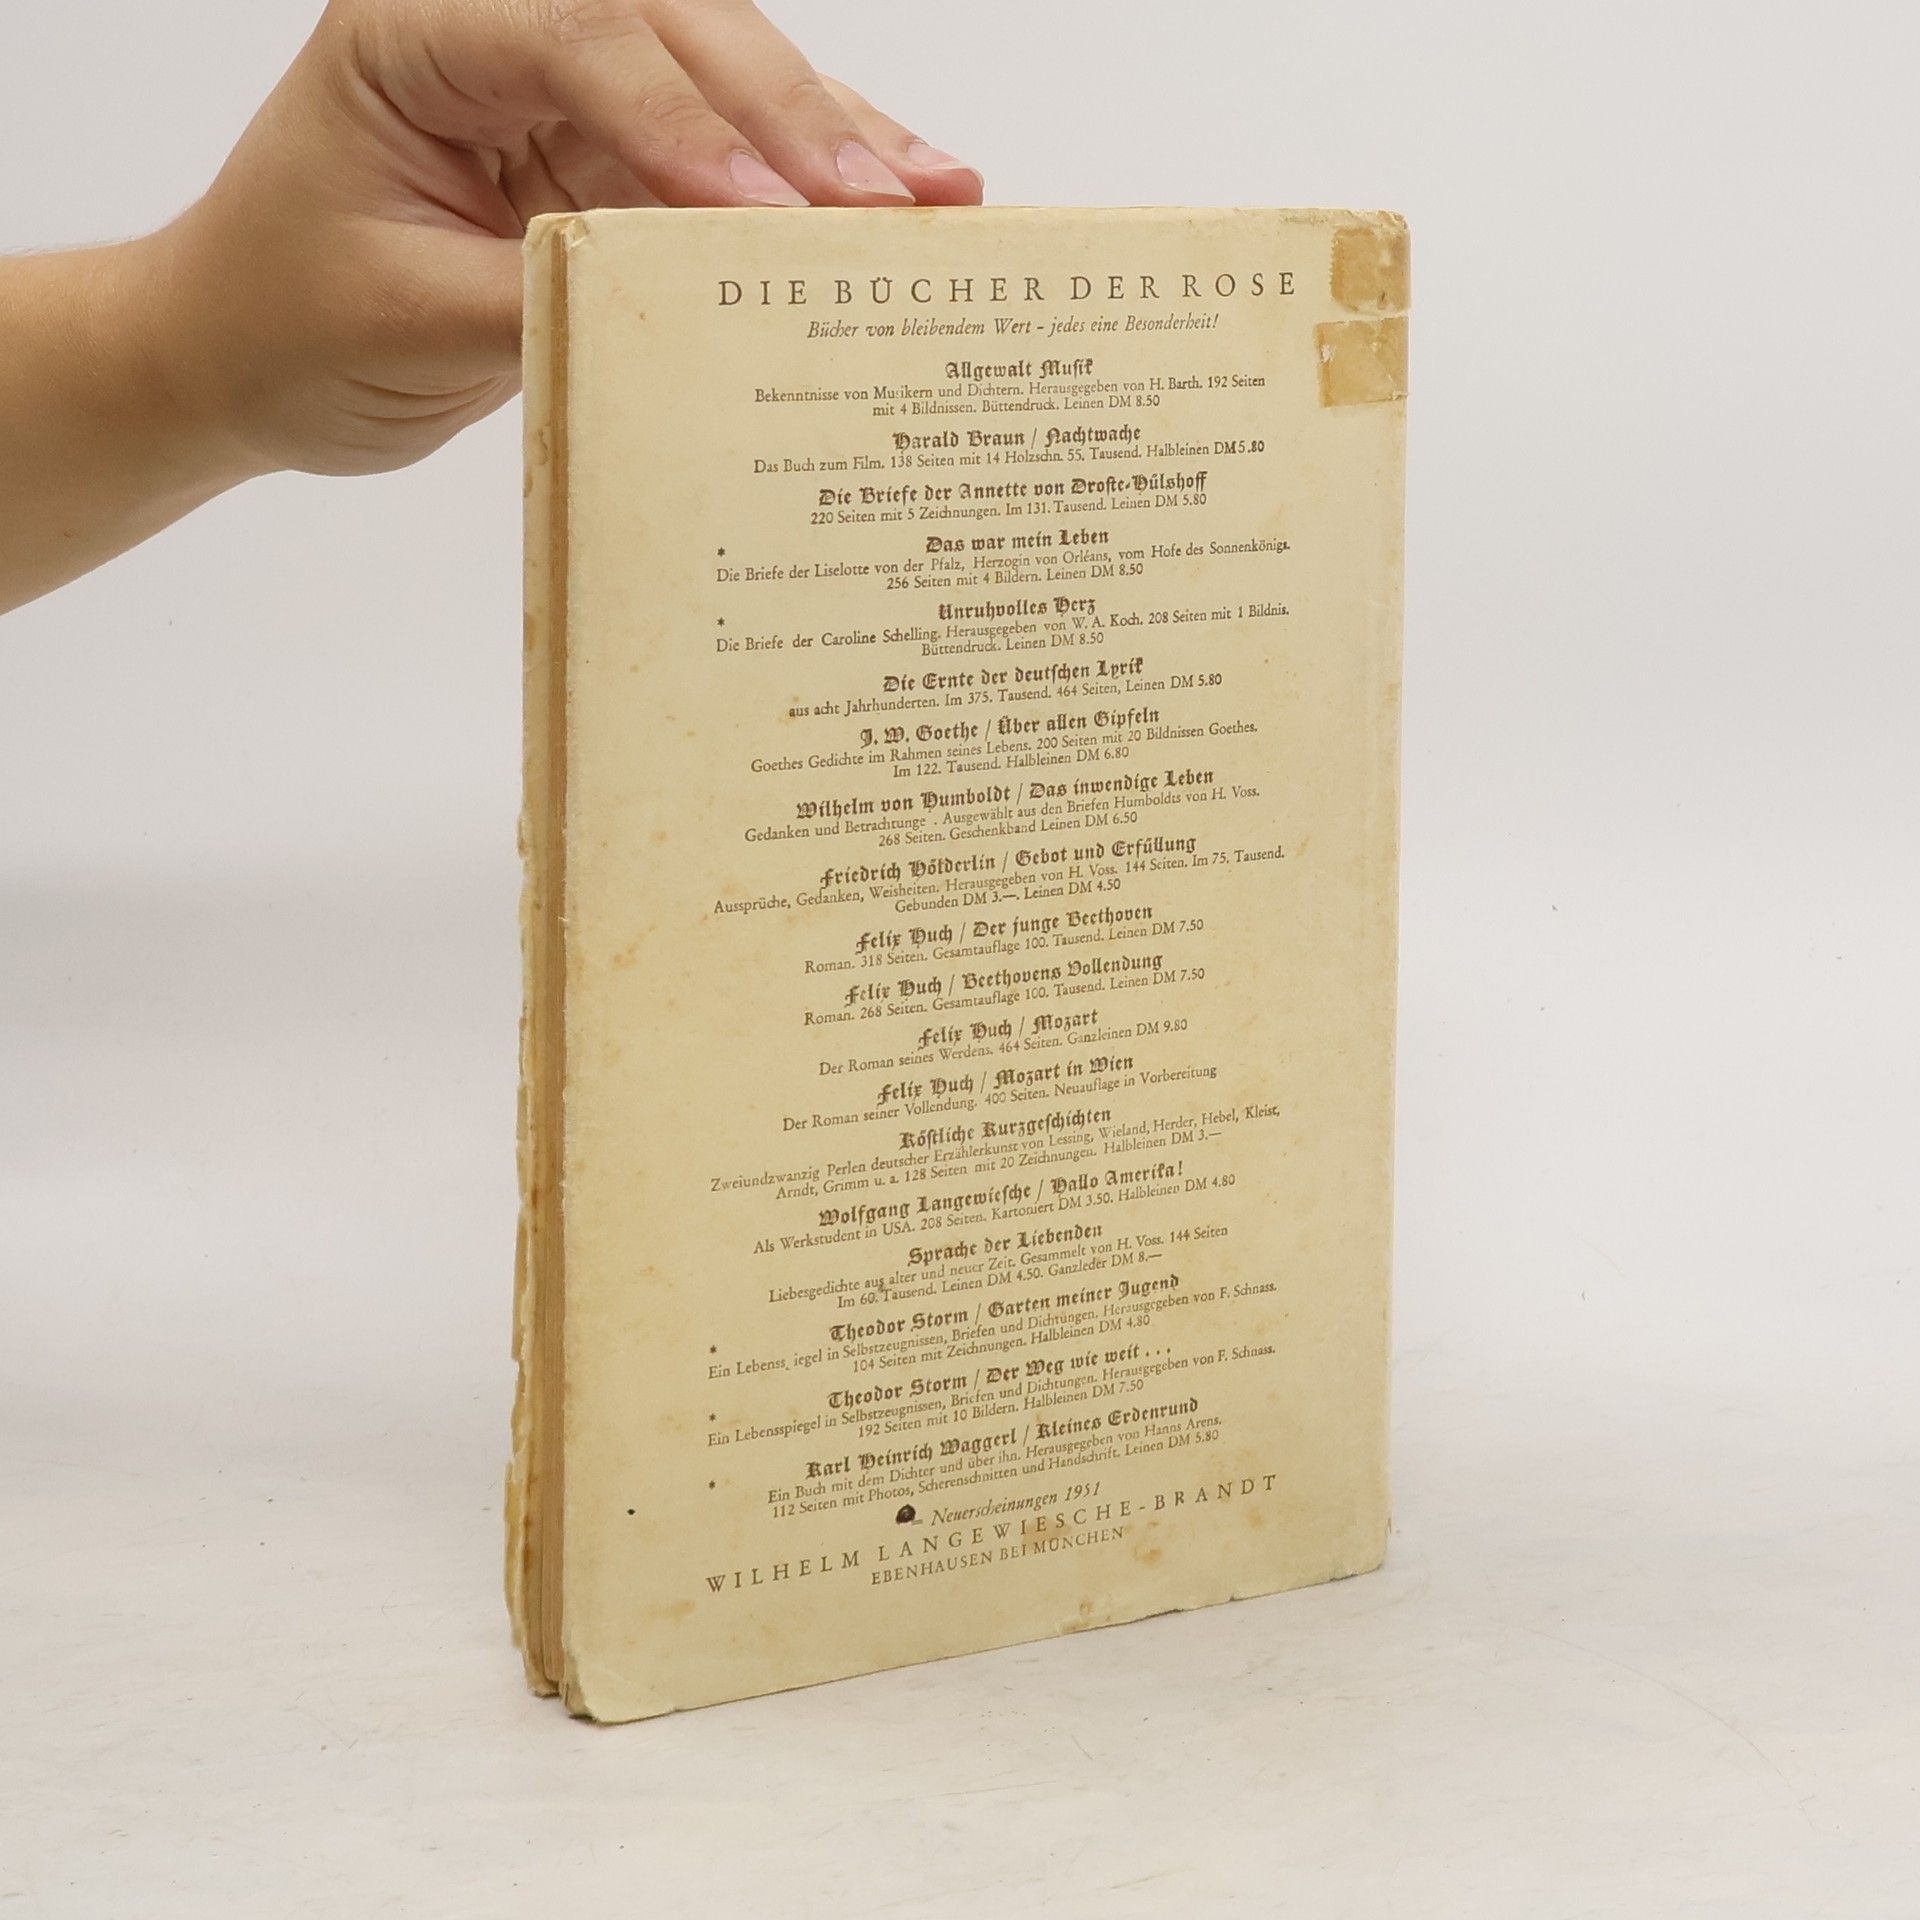 DIE BÜCHER DER ROSE
Bücher von bleibendem Wert – jedes eine Besonderheit!
Allgewalt Musik
Bekenntnisse von Musikern und Dichtern. Herausgegeben von H. Barth. 192 Seiten
mit 4 Bildnissen. Büttendruck. Leinen DM 8.50
Harald Braun / Nachtwache
Das Buch zum Film. 138 Seiten mit 14 Holzschn. 55. Tausend. Halbleinen DM 5.80
Die Briefe der Annette von Droste-Hülshoff
220 Seiten mit 5 Zeichnungen. Im 131. Tausend. Leinen DM 5.80
* Das war mein Leben
Die Briefe der Liselotte von der Pfalz, Herzogin von Orléans, vom Hofe des Sonnenkönigs.
256 Seiten mit 4 Bildern. Leinen DM 8.50
* Unruhvolles Herz
Die Briefe der Caroline Schelling. Herausgegeben von W. A. Koch. 208 Seiten mit 1 Bildnis.
Büttendruck. Leinen DM 8.50
Die Ernte der deutschen Lyrik
aus acht Jahrhunderten. Im 375. Tausend. 464 Seiten, Leinen DM 5.80
J. W. Goethe / Über allen Gipfeln
Goethes Gedichte im Rahmen seines Lebens. 200 Seiten mit 20 Bildnissen Goethes.
Im 122. Tausend. Halbleinen DM 6.80
Wilhelm von Humboldt / Das inwendige Leben
Gedanken und Betrachtunge . Ausgewählt aus den Briefen Humboldts von H. Voss.
268 Seiten. Geschenkband Leinen DM 6.50
Friedrich Hölderlin / Gebot und Erfüllung
Aussprüche, Gedanken, Weisheiten. Herausgegeben von H. Voss. 144 Seiten. Im 75. Tausend.
Gebunden DM 3.—. Leinen DM 4.50
Felix Huch / Der junge Beethoven
Roman. 318 Seiten. Gesamtauflage 100. Tausend. Leinen DM 7.50
Felix Huch / Beethovens Vollendung
Roman. 268 Seiten. Gesamtauflage 100. Tausend. Leinen DM 7.50
Felix Huch / Mozart
Der Roman seines Werdens. 464 Seiten. Ganzleinen DM 9.80
Felix Huch / Mozart in Wien
Der Roman seiner Vollendung. 400 Seiten. Neuauflage in Vorbereitung
Köstliche Kurzgeschichten
Zweiundzwanzig Perlen deutscher Erzählerkunst von Lessing, Wieland, Herder, Hebel, Kleist,
Arndt, Grimm u. a. 128 Seiten mit 20 Zeichnungen. Halbleinen DM 3.—
Wolfgang Langewiesche / Hallo Amerika!
Als Werkstudent in USA. 208 Seiten. Kartoniert DM 3.50. Halbleinen DM 4.80
Sprache der Liebenden
Liebesgedichte aus alter und neuer Zeit. Gesammelt von H. Voss. 144 Seiten
Im 60. Tausend. Leinen DM 4.50. Ganzleder DM 8.—
* Theodor Storm / Garten meiner Jugend
Ein Lebenss iegel in Selbstzeugnissen, Briefen und Dichtungen. Herausgegeben von F. Schnass.
104 Seiten mit Zeichnungen. Halbleinen DM 4.80
* Theodor Storm / Der Weg wie weit . . .
Ein Lebensspiegel in Selbstzeugnissen, Briefen und Dichtungen. Herausgegeben von F. Schnass.
192 Seiten mit 10 Bildern. Halbleinen DM 7.50
* Karl Heinrich Waggerl / Kleines Erdenrund
Ein Buch mit dem Dichter und über ihn. Herausgegeben von Hanns Arens.
112 Seiten mit Photos, Scherenschnitten und Handschrift. Leinen DM 5.80
= Neuerscheinungen 1951
WILHELM LANGEWIESCHE-BRANDT
EBENHAUSEN BEI MÜNCHEN